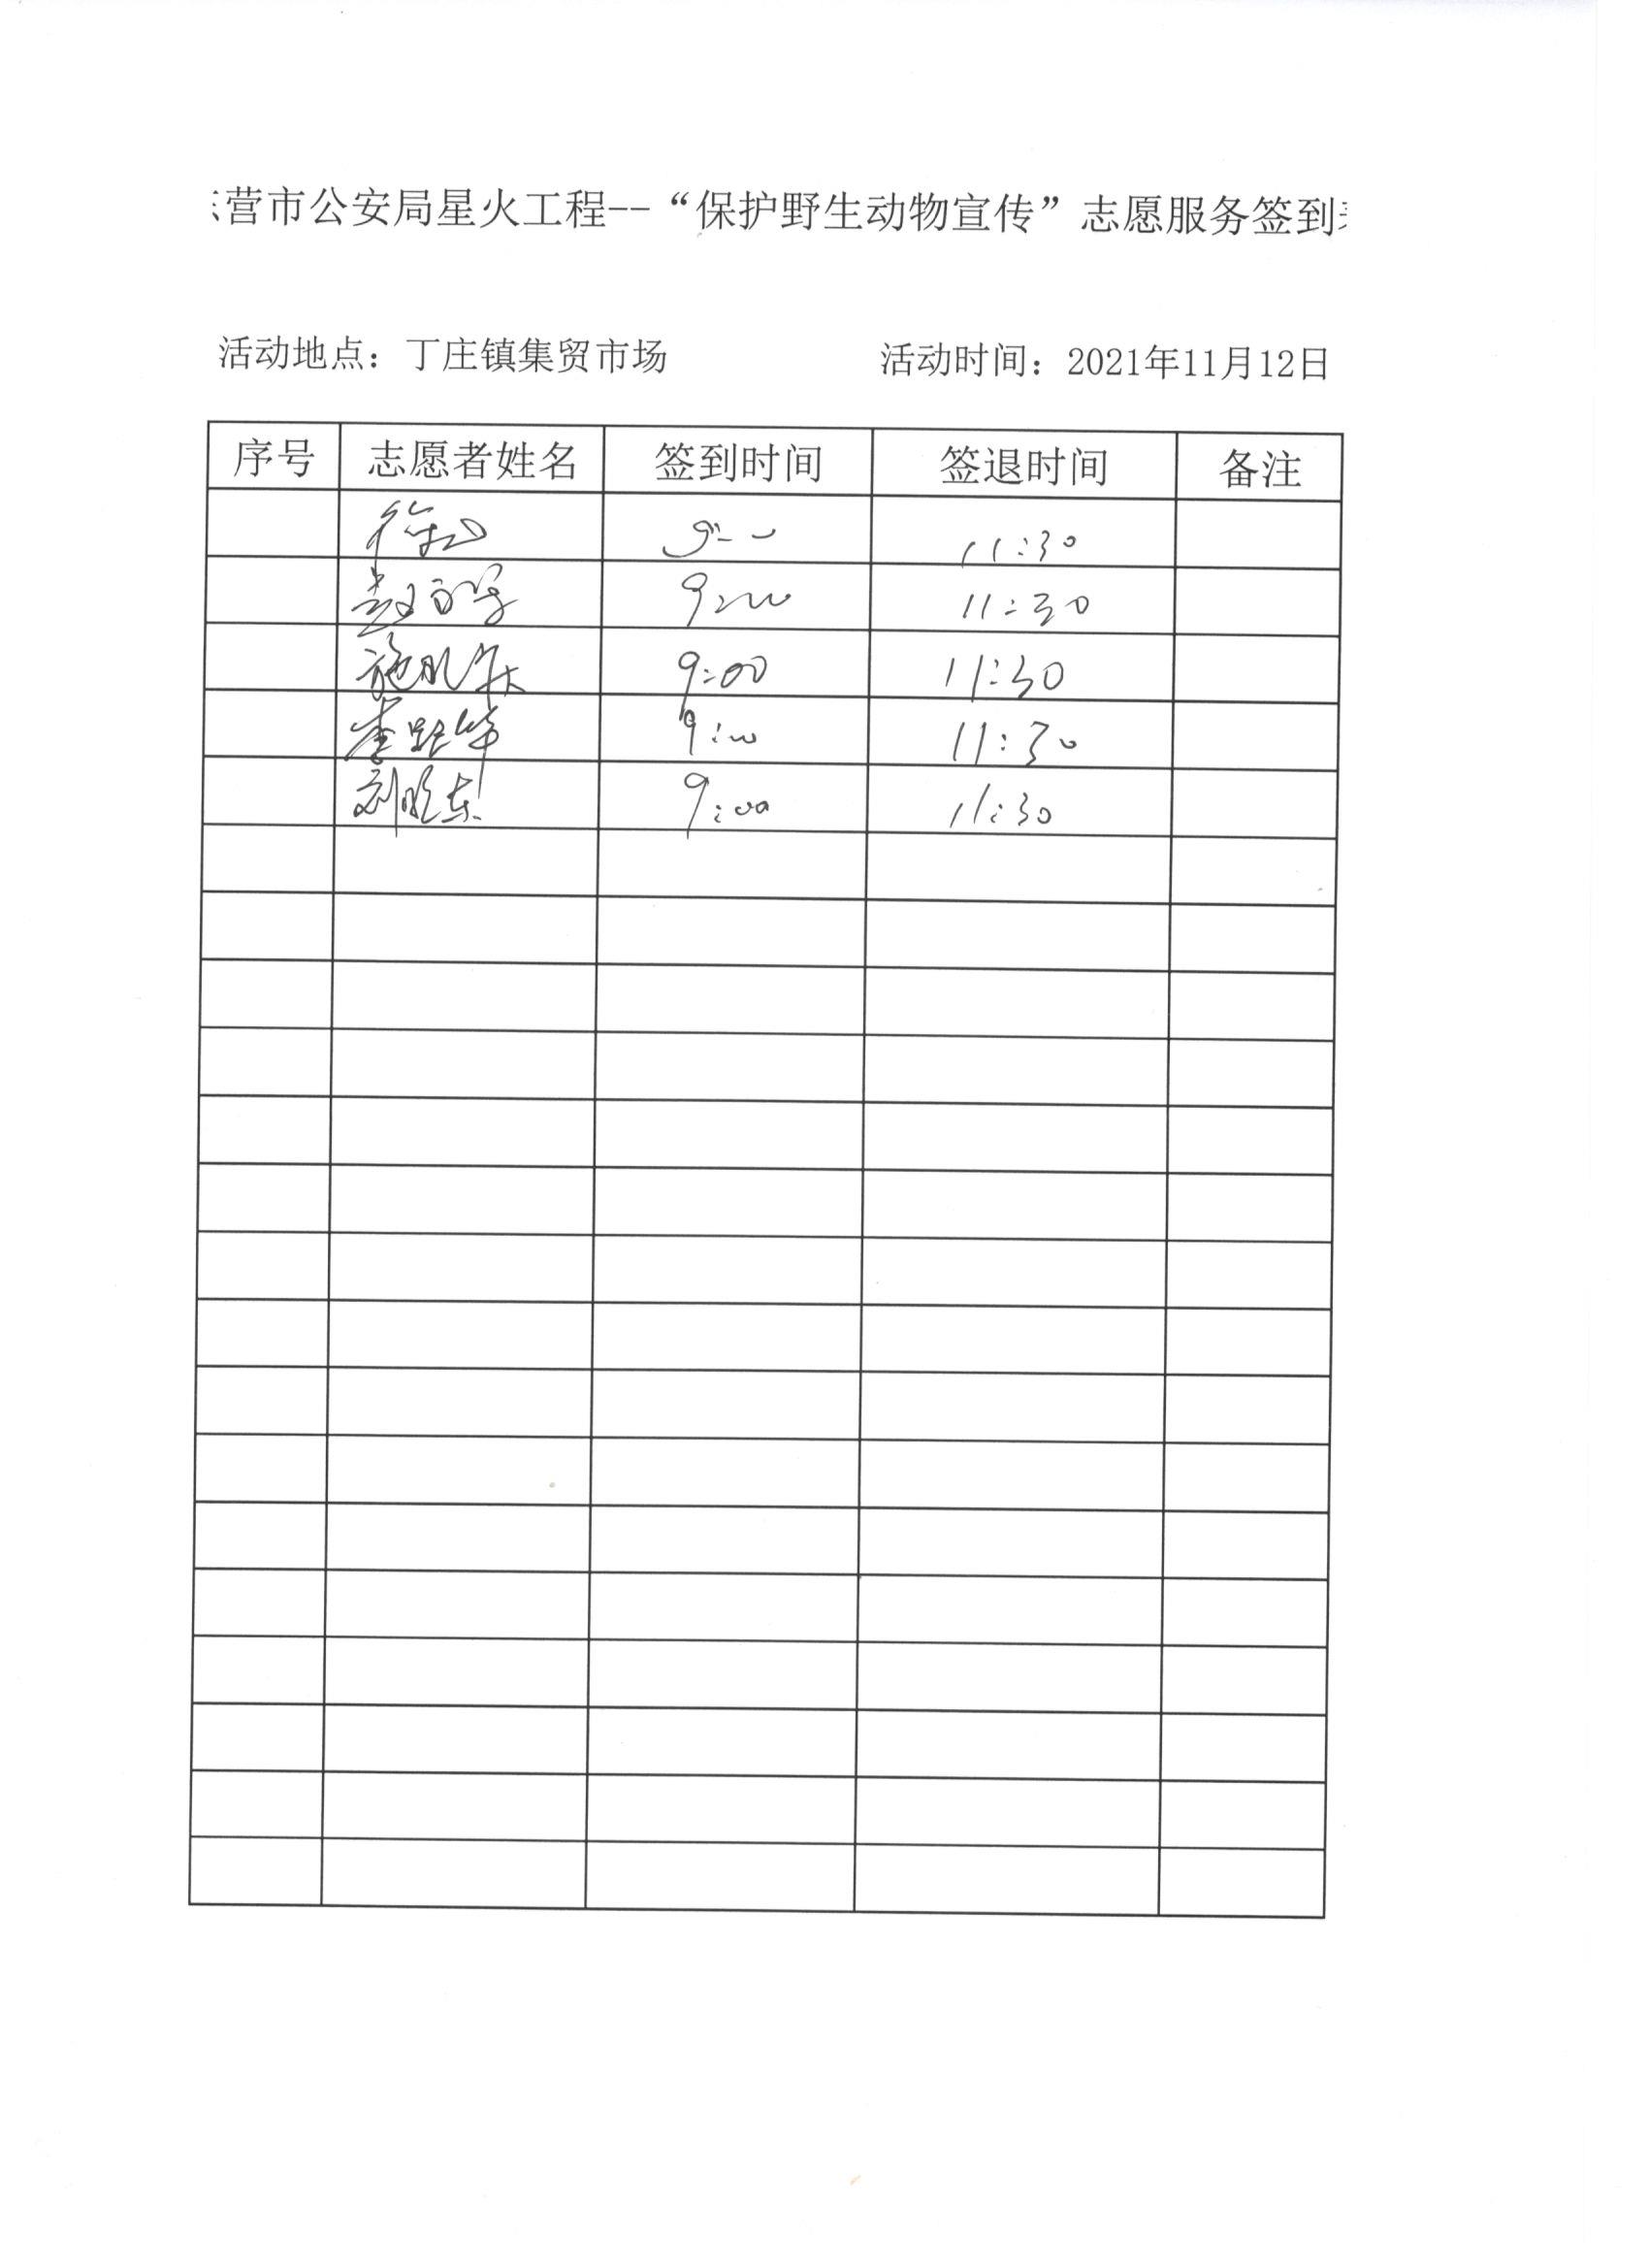 营市公安局星火工程--“保护野生动物宣传”志愿服务签到
活动地点：丁庄镇集贸市场 活动时间：2021年11月12日
序号 志愿者姓名 签到时间 签退时间 备注
徐 9:00 11:30
赵 9:00 11:30
施 9:00 11:30
李 9:00 11:30
刘 东 9:00 11:30